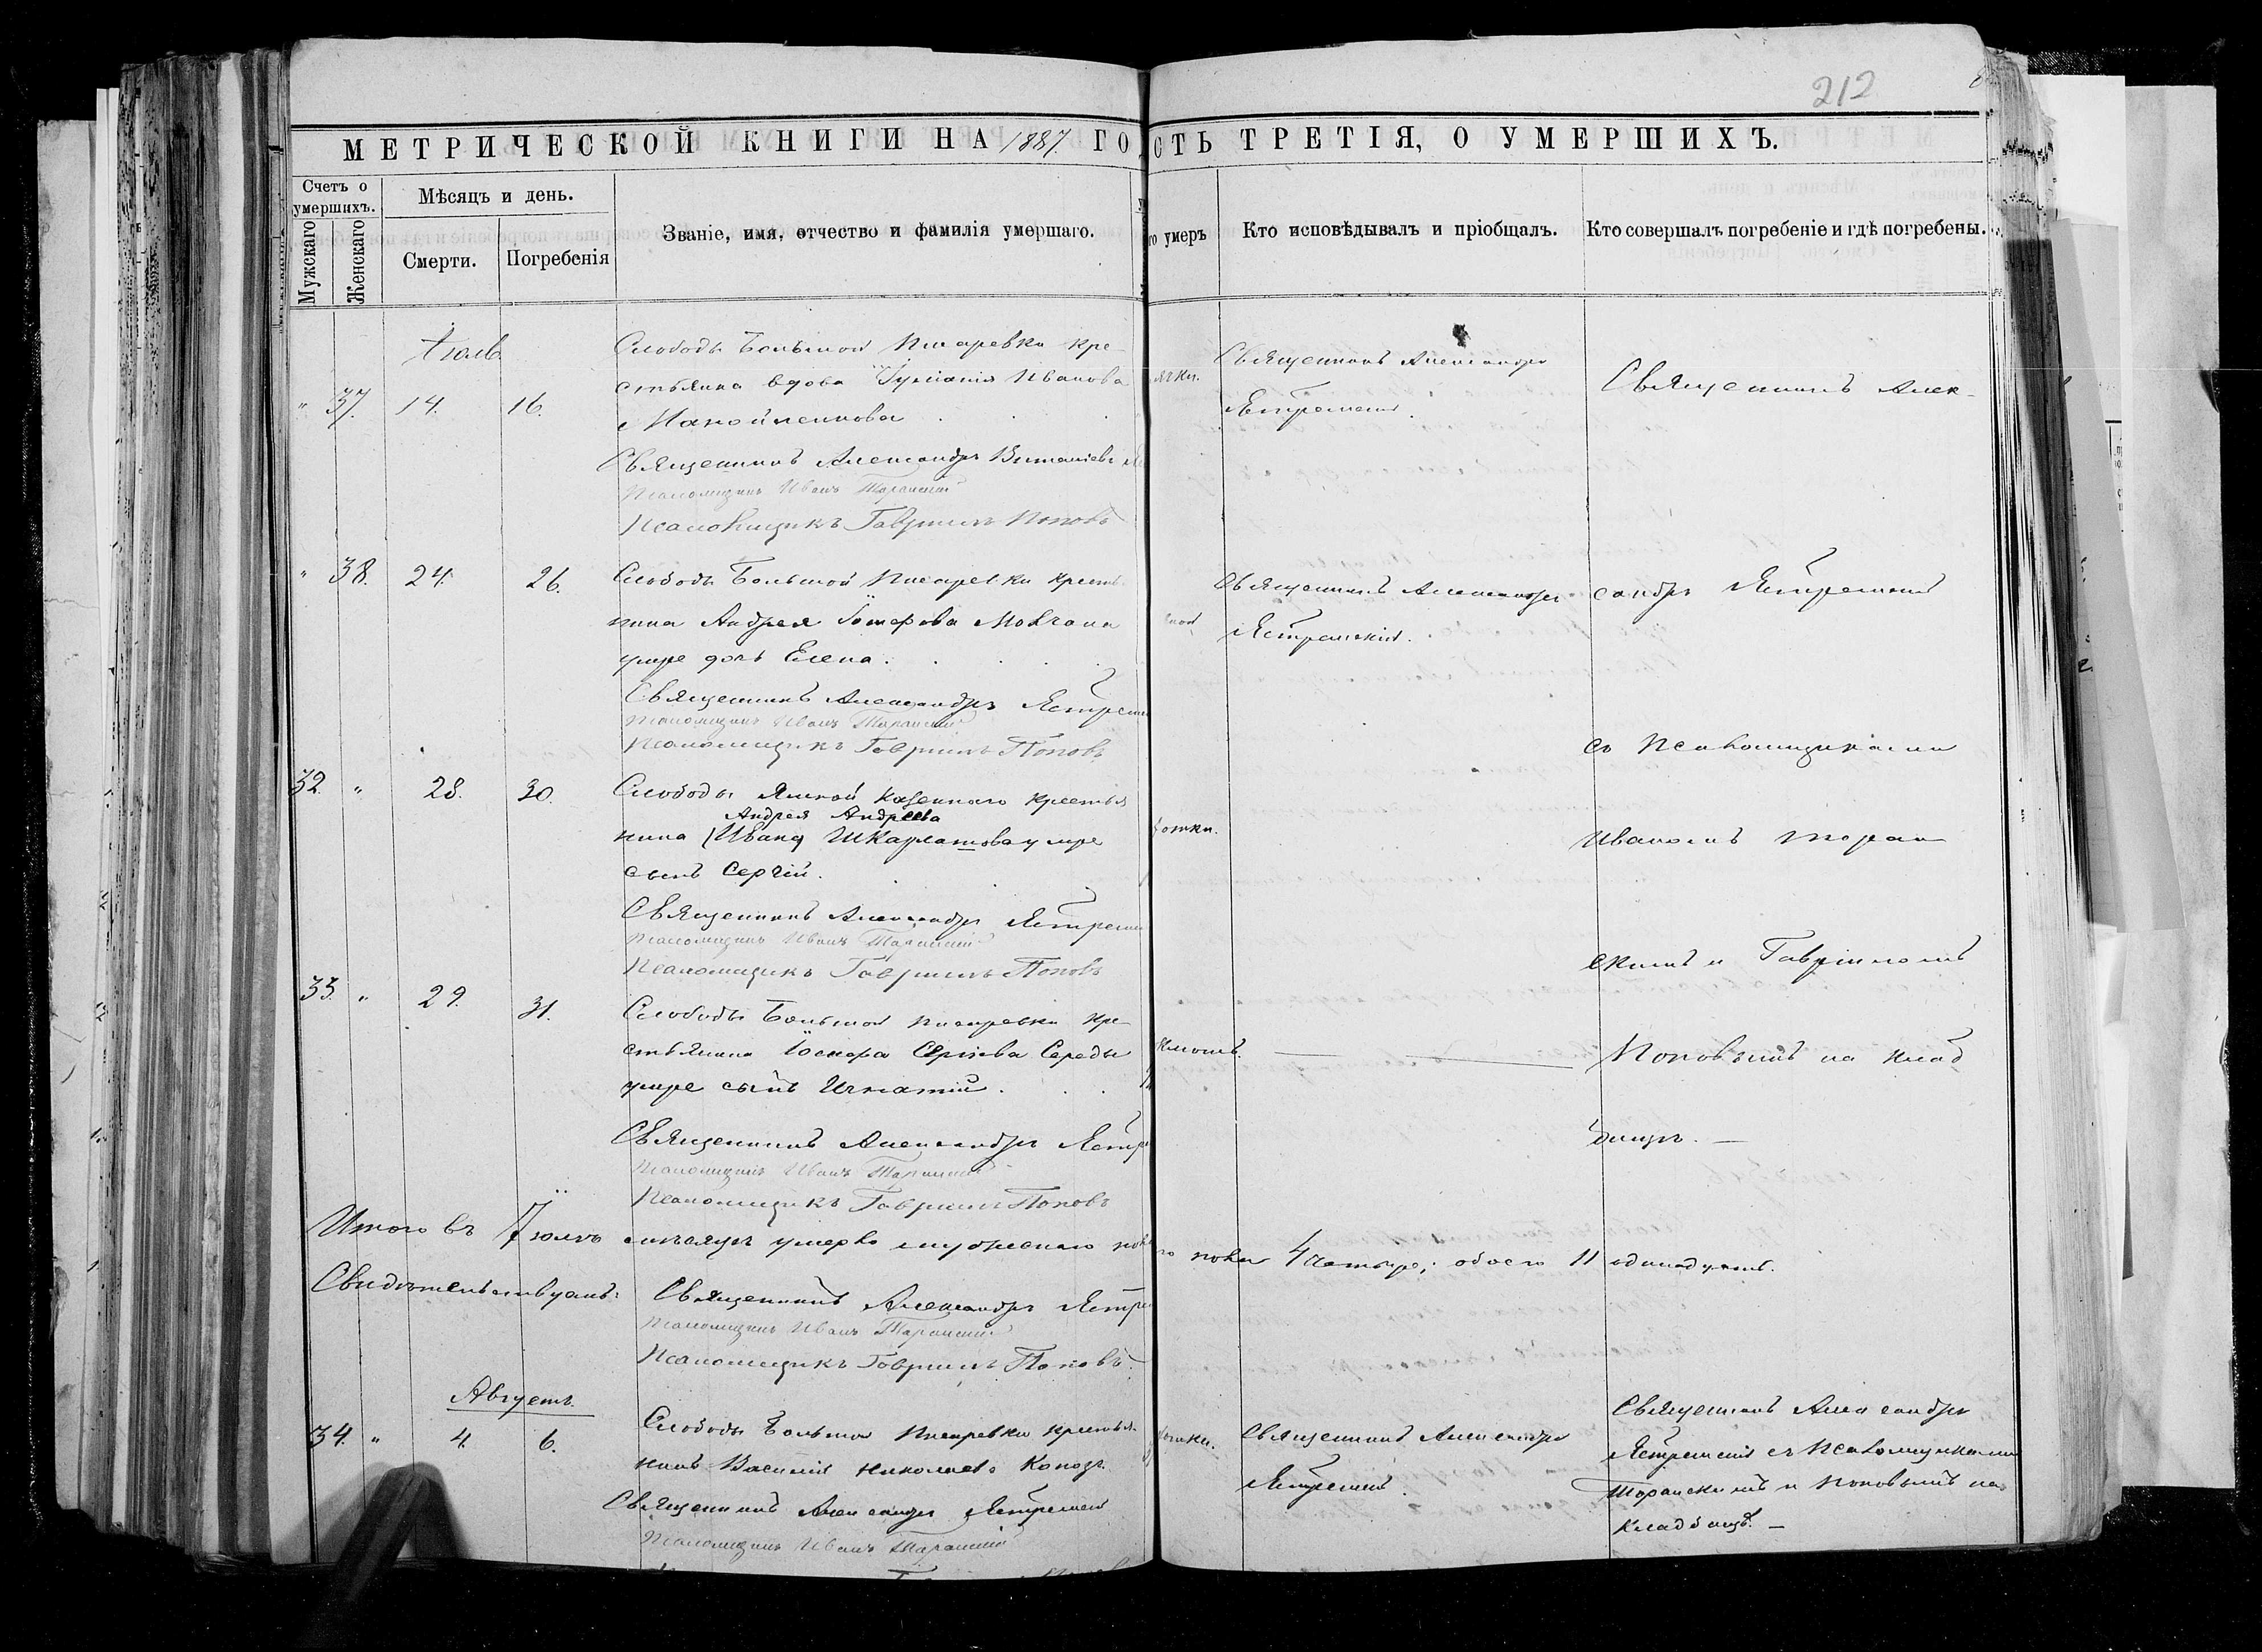 212
МЕТРИЧЕСКОЙ КНИГИ НА 1887 ГО
СТЬ ТРЕТІЯ, О УМЕРШИХЪ.
Счетъ о умершихъ.
Мужскаго
Женскаго
Мѣсяцъ и день.
Смерти.
Погребенія
Званіе, имя, отчество и фамилія умершаго.
го умеръ
Кто исповѣдывалъ и пріобщалъ.
Кто совершалъ погребеніе и гдѣ погребены.
Іюль
" 37. 14. 16.
Слободы Большой Писаревки кре-
стьянка вдова Іуліанія Иванова
Манойленкова
Священникъ Александръ
Псаломщикъ Иванъ Торанскій
Псаломщикъ Гавріилъ Поповъ
Священникъ Александръ
Ястремскій.
Священникъ Алек-
" 38. 24. 26.
Слободы Большой Писаревки кресть
нина Андрея Мовчана
умре дочь Елена.
Священникъ Александръ Ястремс
Псаломщикъ Иванъ Торанскій
Псаломщикъ Гавріилъ Поповъ
Священникъ Александръ
Ястремскій.
сандръ Ястремскій
съ Псаломщиками
32. " 28. 30.
Слободы Ямной казеннаго крестья
Андрея Андреева
нина (Ивана) Шкарлатова умре
сынъ Сергій.
Священникъ Александръ Ястремс
Псаломщикъ Иванъ Торанскій
Псаломщикъ Гавріилъ Поповъ
Иваномъ Торан
скимъ и Гавріиломъ
33. " 29. 31.
Слободы Большой Писаревки кре-
стьянина Іосифа Сергіева Середы
умре сынъ Игнатій.
Священникъ Александръ Ястр
Псаломщикъ Иванъ Торанскій
Псаломщикъ Гавріилъ Поповъ
Поповымъ на клад
бищѣ. —
Итого въ Іюлѣ мѣсяцѣ умерло мужескаго пола
го пола 4 четыре, обоего 11 одинадцать.
Свидѣтельствуемъ: Священникъ Александръ Ястре
Псаломщикъ Иванъ Торанскій
Псаломщикъ Гавріилъ Поповъ.
Августъ.
34. " 4. 6.
Слободы Большой Писаревки крестья-
нинъ Василій Николаевъ
Священникъ Александръ Ястремскій
Псаломщикъ Иванъ Торанскій
Священникъ Александръ
Ястремскій.
Священникъ Александръ
Ястремскій съ Псаломщиками
Торанскимъ и Поповымъ на
кладбищѣ. —